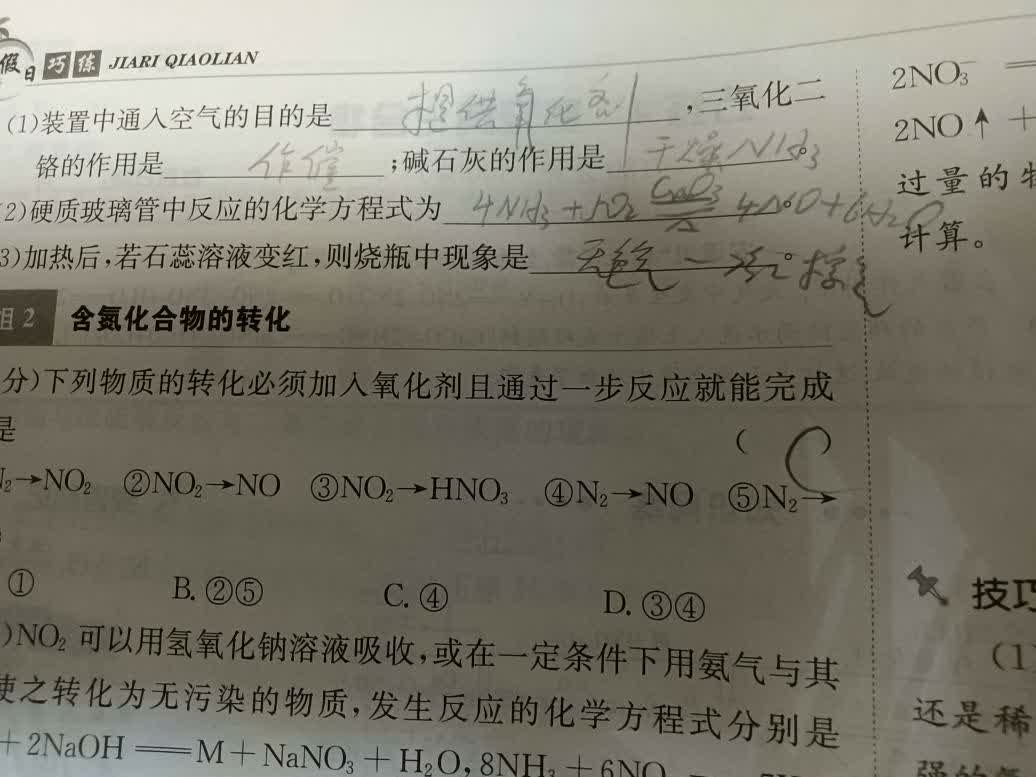 假日巧练 JIARI QIAOLIAN
(1)装置中通入空气的目的是 提供氧化剂 ,三氧化二
铬的作用是 作催 ;碱石灰的作用是 干燥NH3 。
(2)硬质玻璃管中反应的化学方程式为 4NH₃+5O₂ 4NO+6H₂O 。
3)加热后,若石蕊溶液变红,则烧瓶中现象是 无色气 → 红棕色 。
组2 含氮化合物的转化
分)下列物质的转化必须加入氧化剂且通过一步反应就能完成
是 ( C )
→NO₂ ②NO₂→NO ③NO₂→HNO₃ ④N₂→NO ⑤N₂→
① B. ②⑤ C. ④ D. ③④
)NO₂ 可以用氢氧化钠溶液吸收,或在一定条件下用氨气与其
使之转化为无污染的物质,发生反应的化学方程式分别是
+2NaOH══M+NaNO₃+H₂O,8NH₃+6NO
2NO₃⁻ ═
2NO↑+
过量的
计算。
技巧
(1
还是稀